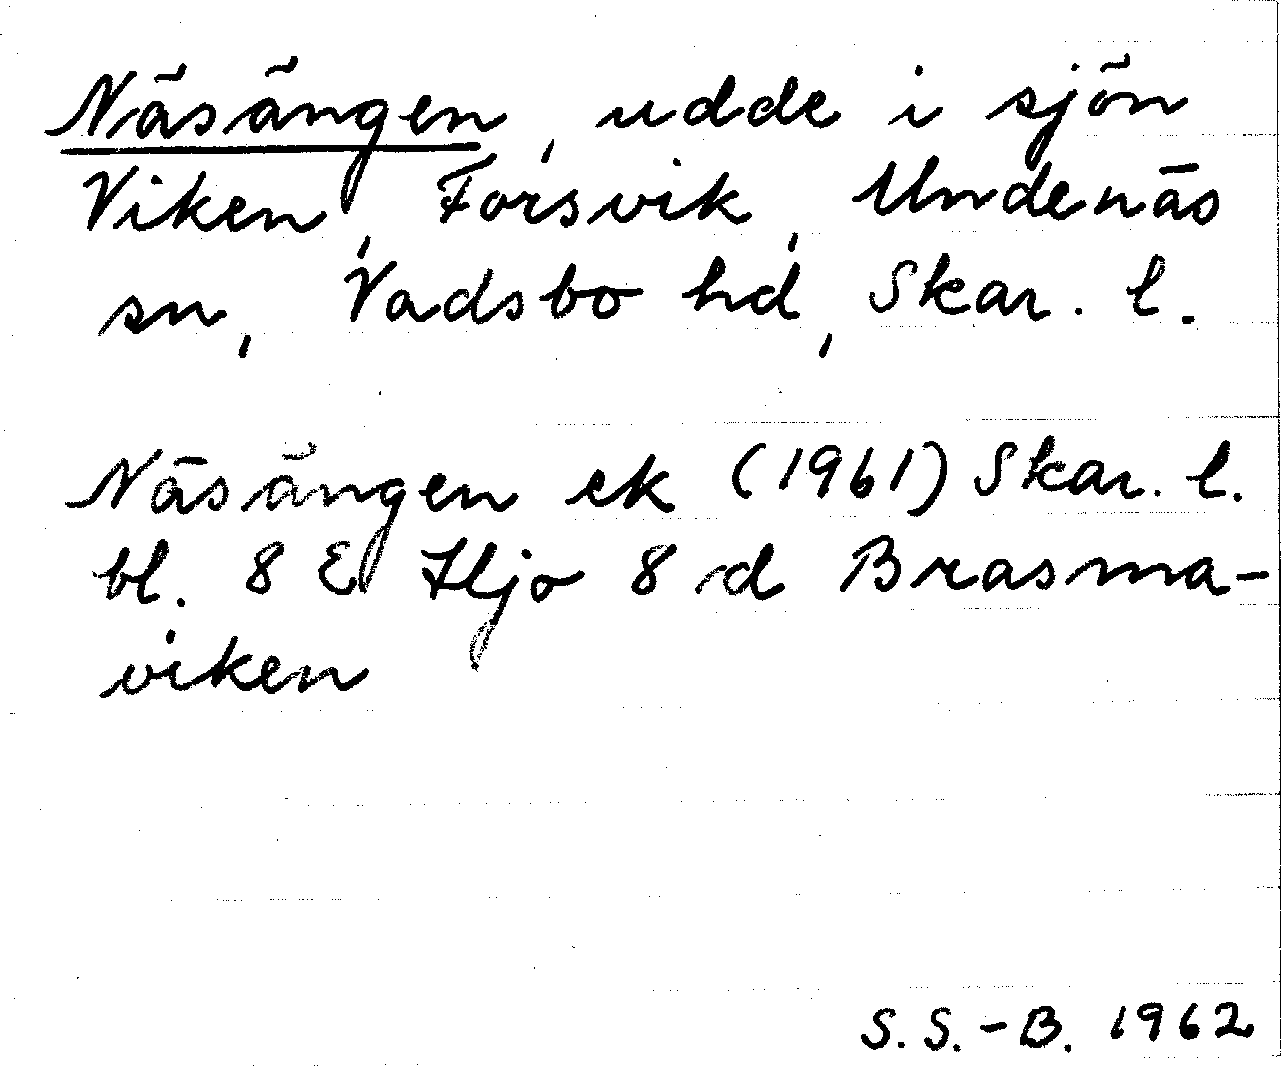 Näsängen, udde i sjön
Viken, Forsvik, Undenäs
sn, Vadsbo hd, Skar. l.
Näsängen ek (1961) Skar. l.
bl. 8 E Hjo 8 d Brasma-
viken
S. S.-B. 1962